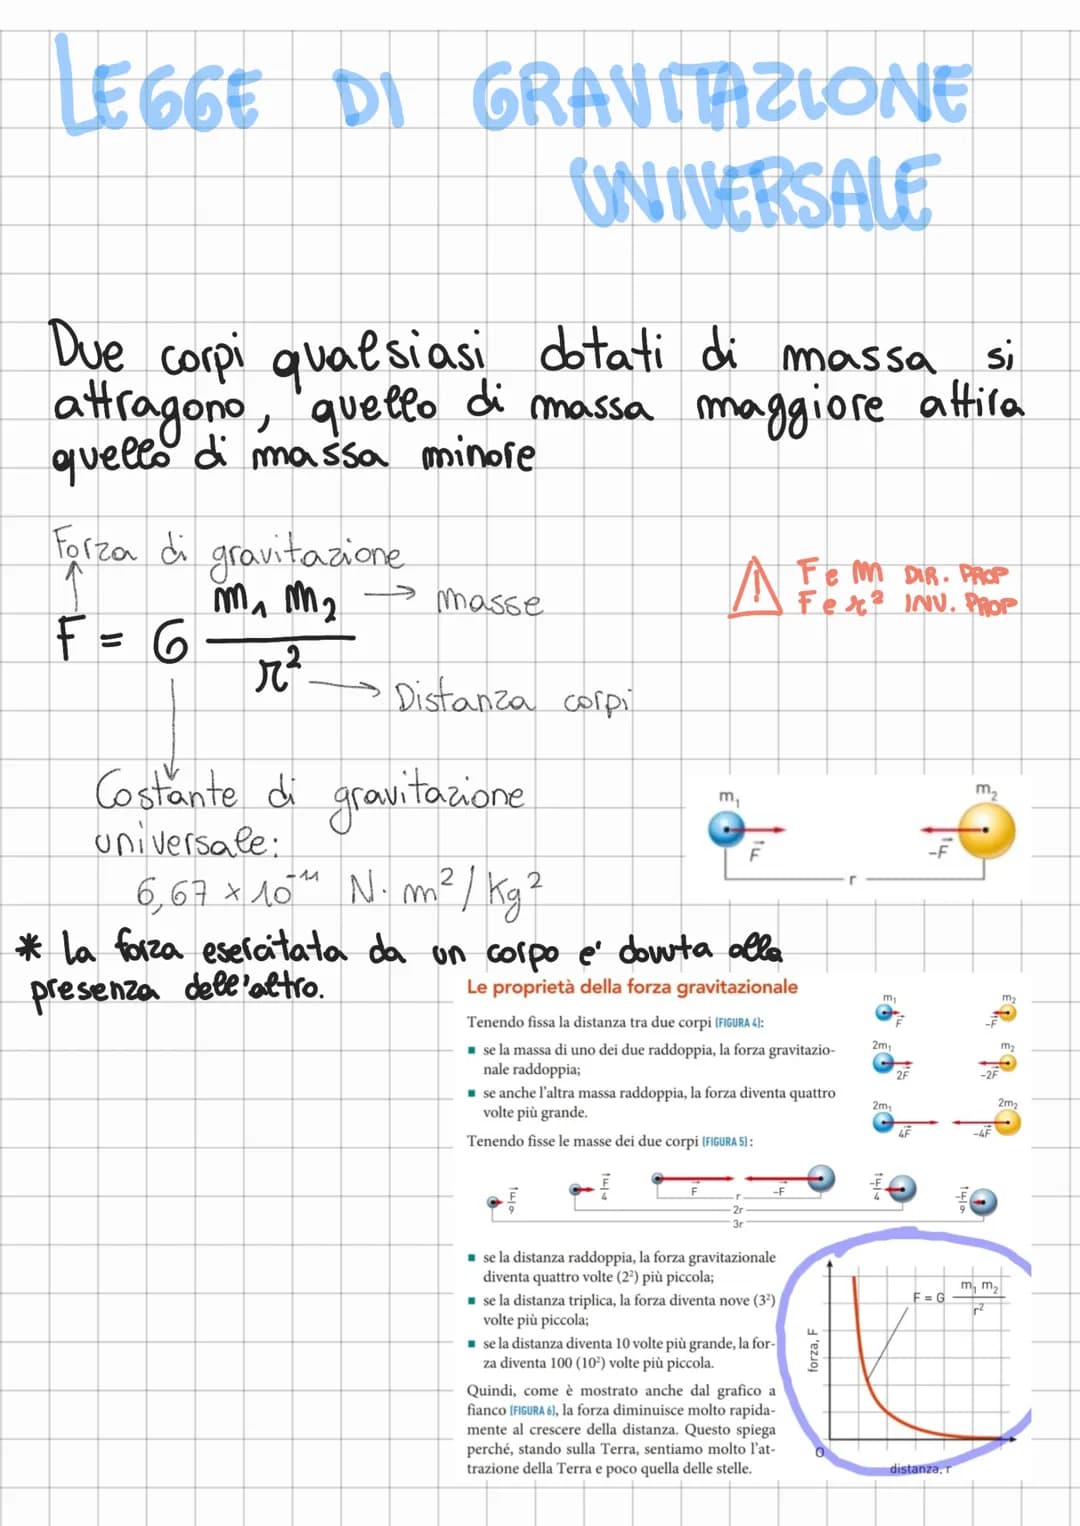 LEGGE DI GRAVITAZIONE
UNIVERSALE
Due corpi qualsiasi dotati di massa si
attragono, quello di massa maggiore attira
quello di massa minore
Forza di gravitazione
F = G m₁ m₂ / r²
→ masse
→ Distanza corpi
⚠ F e m DIR. PROP
F e r² INV. PROP
Costante di gravitazione
universale:
6,67 × 10⁻¹¹ N · m² / kg²
m₁
m₂
F⃗
-F⃗
r
* La forza esercitata da un corpo e' dovuta alla
presenza dell'altro.
Le proprietà della forza gravitazionale
Tenendo fissa la distanza tra due corpi (FIGURA 4):
■ se la massa di uno dei due raddoppia, la forza gravitazio-
nale raddoppia;
■ se anche l'altra massa raddoppia, la forza diventa quattro
volte più grande.
Tenendo fisse le masse dei due corpi (FIGURA 5):
m₁ m₂
F⃗ -F⃗
2m₁ m₂
2F⃗ -2F⃗
2m₁ 2m₂
4F⃗ -4F⃗
F⃗/9 F⃗/4 F⃗ -F⃗ -F⃗/4 -F⃗/9
r
2r
3r
■ se la distanza raddoppia, la forza gravitazionale
diventa quattro volte (2²) più piccola;
■ se la distanza triplica, la forza diventa nove (3²)
volte più piccola;
■ se la distanza diventa 10 volte più grande, la for-
za diventa 100 (10²) volte più piccola.
Quindi, come è mostrato anche dal grafico a
fianco (FIGURA 6), la forza diminuisce molto rapida-
mente al crescere della distanza. Questo spiega
perché, stando sulla Terra, sentiamo molto l'at-
trazione della Terra e poco quella delle stelle.
F = G m₁ m₂ / r²
forza, F
0
distanza, r